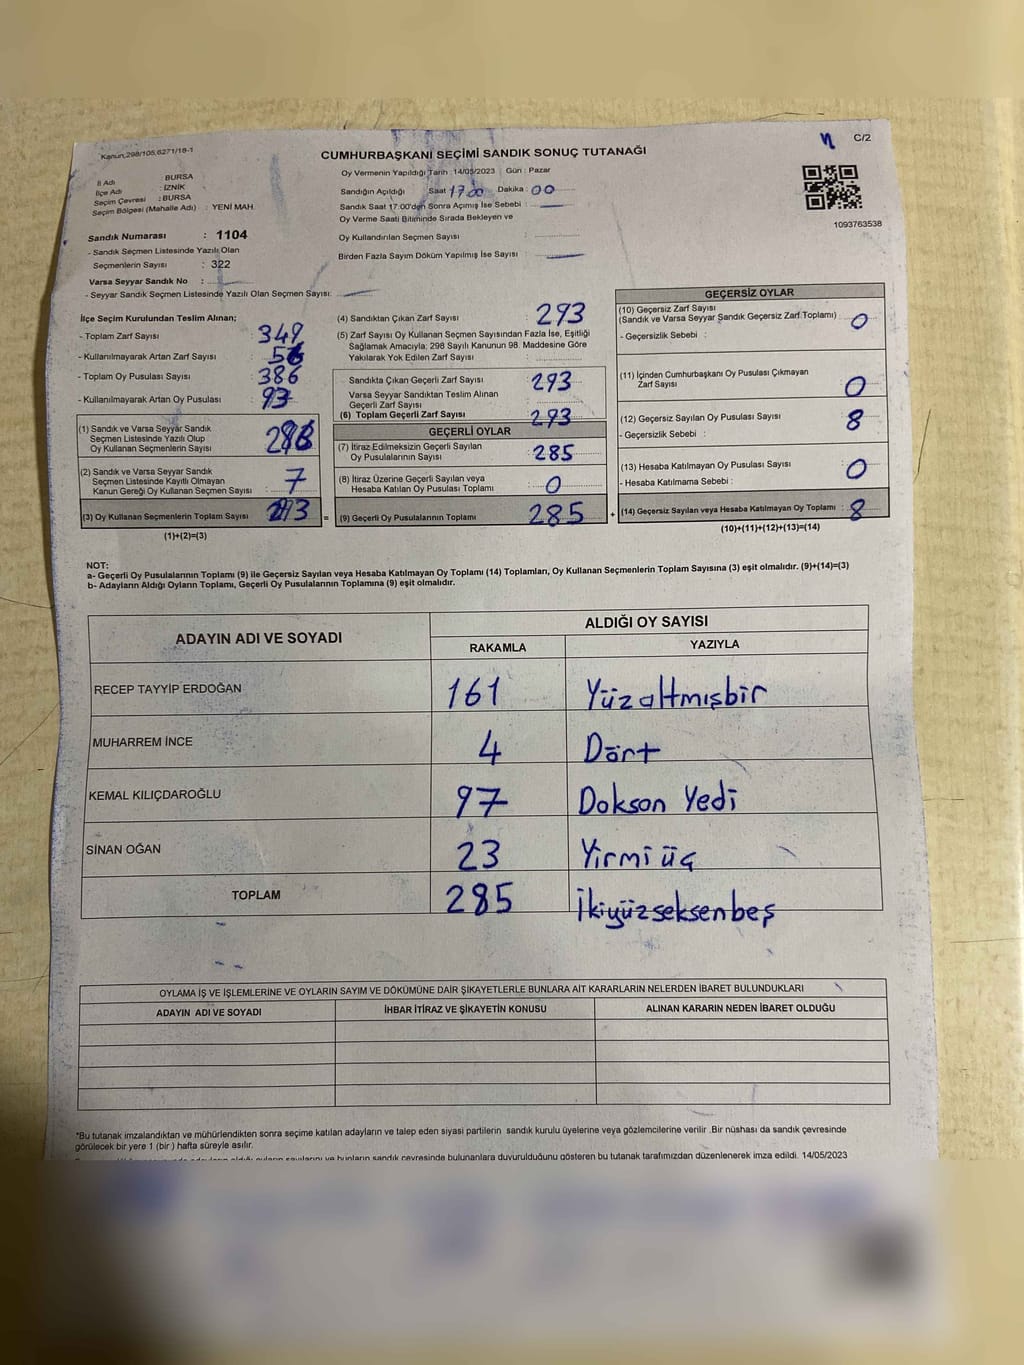 Kanun,298/105,6271/18-1
n
C/2
CUMHURBAŞKANI SEÇİMİ SANDIK SONUÇ TUTANAĞI
İl Adı : BURSA
İlçe Adı : İZNİK
Seçim Çevresi : BURSA
Seçim Bölgesi (Mahalle Adı) : YENİ MAH.
Oy Vermenin Yapıldığı Tarih : 14/05/2023 Gün : Pazar
Sandığın Açıldığı Saat 17.00 Dakika : 00
Sandık Saat 17.00'den Sonra Açımış İse Sebebi :
Oy Verme Saati Bitiminde Sırada Bekleyen ve
Oy Kullandırılan Seçmen Sayısı :
Birden Fazla Sayım Döküm Yapılmış İse Sayısı :
1093763538
Sandık Numarası : 1104
- Sandık Seçmen Listesinde Yazılı Olan
Seçmenlerin Sayısı : 322
Varsa Seyyar Sandık No :
- Seyyar Sandık Seçmen Listesinde Yazılı Olan Seçmen Sayısı:
İlçe Seçim Kurulundan Teslim Alınan;
- Toplam Zarf Sayısı : 349
- Kullanılmayarak Artan Zarf Sayısı : 56
- Toplam Oy Pusulası Sayısı : 386
- Kullanılmayarak Artan Oy Pusulası : 93
(1) Sandık ve Varsa Seyyar Sandık
Seçmen Listesinde Yazılı Olup
Oy Kullanan Seçmenlerin Sayısı : 286
(2) Sandık ve Varsa Seyyar Sandık
Seçmen Listesinde Kayıtlı Olmayan
Kanun Gereği Oy Kullanan Seçmen Sayısı : 7
(3) Oy Kullanan Seçmenlerin Toplam Sayısı : 293 =
(1)+(2)=(3)
(4) Sandıktan Çıkan Zarf Sayısı : 293
(5) Zarf Sayısı Oy Kullanan Seçmen Sayısından Fazla İse, Eşitliği
Sağlamak Amacıyla; 298 Sayılı Kanunun 98. Maddesine Göre
Yakılarak Yok Edilen Zarf Sayısı :
Sandıkta Çıkan Geçerli Zarf Sayısı : 293
Varsa Seyyar Sandıktan Teslim Alınan
Geçerli Zarf Sayısı :
(6) Toplam Geçerli Zarf Sayısı : 293
GEÇERLİ OYLAR
(7) İtiraz Edilmeksizin Geçerli Sayılan
Oy Pusulalarının Sayısı : 285
(8) İtiraz Üzerine Geçerli Sayılan veya
Hesaba Katılan Oy Pusulası Toplamı : 0
(9) Geçerli Oy Pusulalarının Toplamı : 285 +
GEÇERSİZ OYLAR
(10) Geçersiz Zarf Sayısı
(Sandık ve Varsa Seyyar Sandık Geçersiz Zarf Toplamı) : 0
- Geçersizlik Sebebi :
(11) İçinden Cumhurbaşkanı Oy Pusulası Çıkmayan
Zarf Sayısı : 0
(12) Geçersiz Sayılan Oy Pusulası Sayısı : 8
- Geçersizlik Sebebi :
(13) Hesaba Katılmayan Oy Pusulası Sayısı : 0
- Hesaba Katılmama Sebebi :
(14) Geçersiz Sayılan veya Hesaba Katılmayan Oy Toplamı : 8
(10)+(11)+(12)+(13)=(14)
NOT:
a- Geçerli Oy Pusulalarının Toplamı (9) ile Geçersiz Sayılan veya Hesaba Katılmayan Oy Toplamı (14) Toplamları, Oy Kullanan Seçmenlerin Toplam Sayısına (3) eşit olmalıdır. (9)+(14)=(3)
b- Adayların Aldığı Oyların Toplamı, Geçerli Oy Pusulalarının Toplamına (9) eşit olmalıdır.
ADAYIN ADI VE SOYADI
ALDIĞI OY SAYISI
RAKAMLA YAZIYLA
RECEP TAYYİP ERDOĞAN 161 Yüzaltmışbir
MUHARREM İNCE 4 Dört
KEMAL KILIÇDAROĞLU 97 Dokson Yedi
SİNAN OĞAN 23 Yirmi üç
TOPLAM 285 İkiyüzseksenbeş
OYLAMA İŞ VE İŞLEMLERİNE VE OYLARIN SAYIM VE DÖKÜMÜNE DAİR ŞİKAYETLERLE BUNLARA AİT KARARLARIN NELERDEN İBARET BULUNDUKLARI
ADAYIN ADI VE SOYADI İHBAR İTİRAZ VE ŞİKAYETİN KONUSU ALINAN KARARIN NEDEN İBARET OLDUĞU
*Bu tutanak imzalandıktan ve mühürlendikten sonra seçime katılan adayların ve talep eden siyasi partilerin sandık kurulu üyelerine veya gözlemcilerine verilir .Bir nüshası da sandık çevresinde
görülecek bir yere 1 (bir ) hafta süreyle asılır.
sandık çevresinde bulunanlara duyurulduğunu gösteren bu tutanak tarafımızdan düzenlenerek imza edildi. 14/05/2023